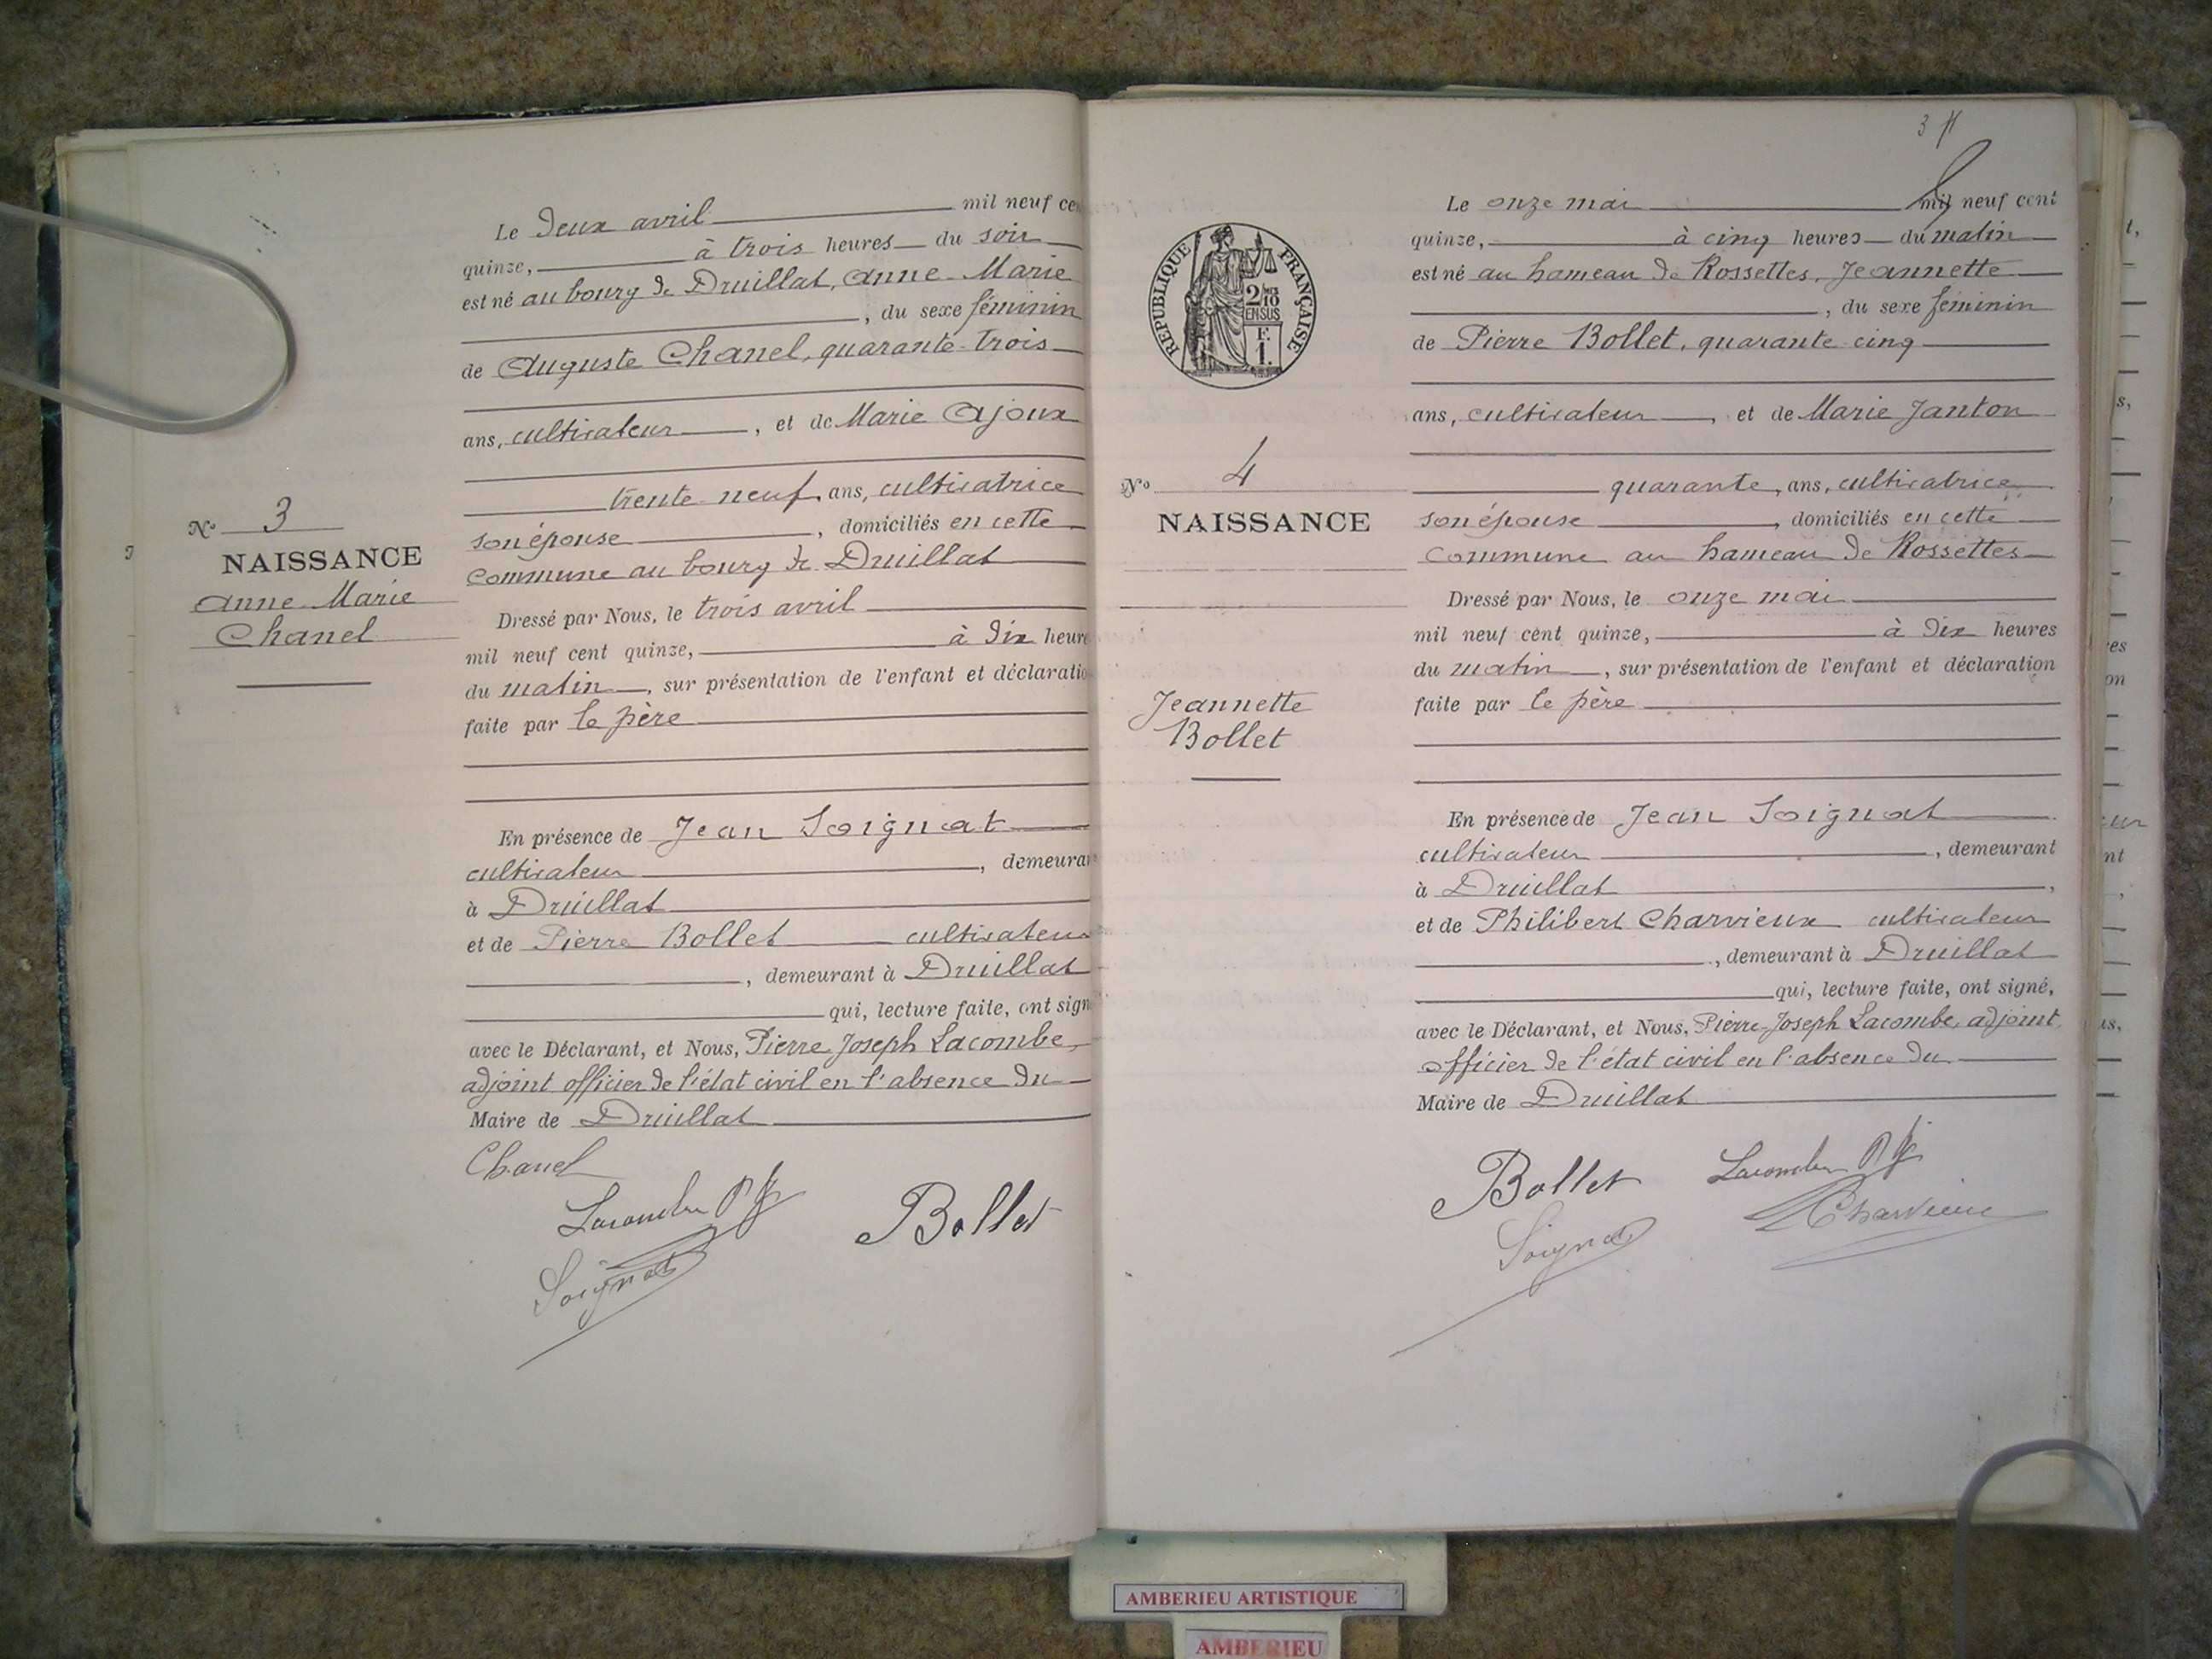 Le deux avril mil neuf cen
quinze, à trois heures du soir
est né au bourg de Druillat, Anne-Marie
, du sexe féminin
de Auguste Chanel, quarante-trois
ans, cultivateur, et de Marie Ajoux
trente-neuf, ans, cultivatrice
son épouse, domiciliés en cette
commune au bourg de Druillat
N° 3
NAISSANCE
Anne-Marie
Chanel
Dressé par Nous, le trois avril
mil neuf cent quinze, à dix heure
du matin, sur présentation de l'enfant et déclaratio
faite par le père
En présence de Jean Soignat
cultivateur, demeuran
à Druillat
et de Pierre Bollet cultivateur
, demeurant à Druillat
qui, lecture faite, ont sign
avec le Déclarant, et Nous, Pierre Joseph Lacombe,
adjoint officier de l'état civil en l'absence du
Maire de Druillat
Chanel
Lacombe P J
Bollet
Soignat
3
RÉPUBLIQUE FRANÇAISE
2/10
EN SUS
F.
1.
Le onze mai mil neuf cent
quinze, à cinq heures du matin
est né au hameau de Rossettes, Jeannette
, du sexe féminin
de Pierre Bollet, quarante-cinq
ans, cultivateur, et de Marie Janton
quarante, ans, cultivatrice
son épouse, domiciliés en cette
commune au hameau de Rossettes
N° 4
NAISSANCE
Jeannette
Bollet
Dressé par Nous, le onze mai
mil neuf cent quinze, à dix heures
du matin, sur présentation de l'enfant et déclaration
faite par le père
En présence de Jean Soignat
cultivateur, demeurant
à Druillat,
et de Philibert Charvieux cultivateur
, demeurant à Druillat
qui, lecture faite, ont signé,
avec le Déclarant, et Nous, Pierre-Joseph Lacombe, adjoint
officier de l'état civil en l'absence du
Maire de Druillat
Bollet
Lacombe P J
Soignat
Charvieux
AMBERIEU ARTISTIQUE
AMBERIEU